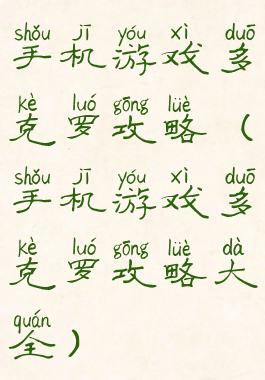 shǒu jī yóu xì duō
手机游戏多
kè luó gōng lüè
克罗攻略（
shǒu jī yóu xì duō
手机游戏多
kè luó gōng lüè dà
克罗攻略大
quán
全）